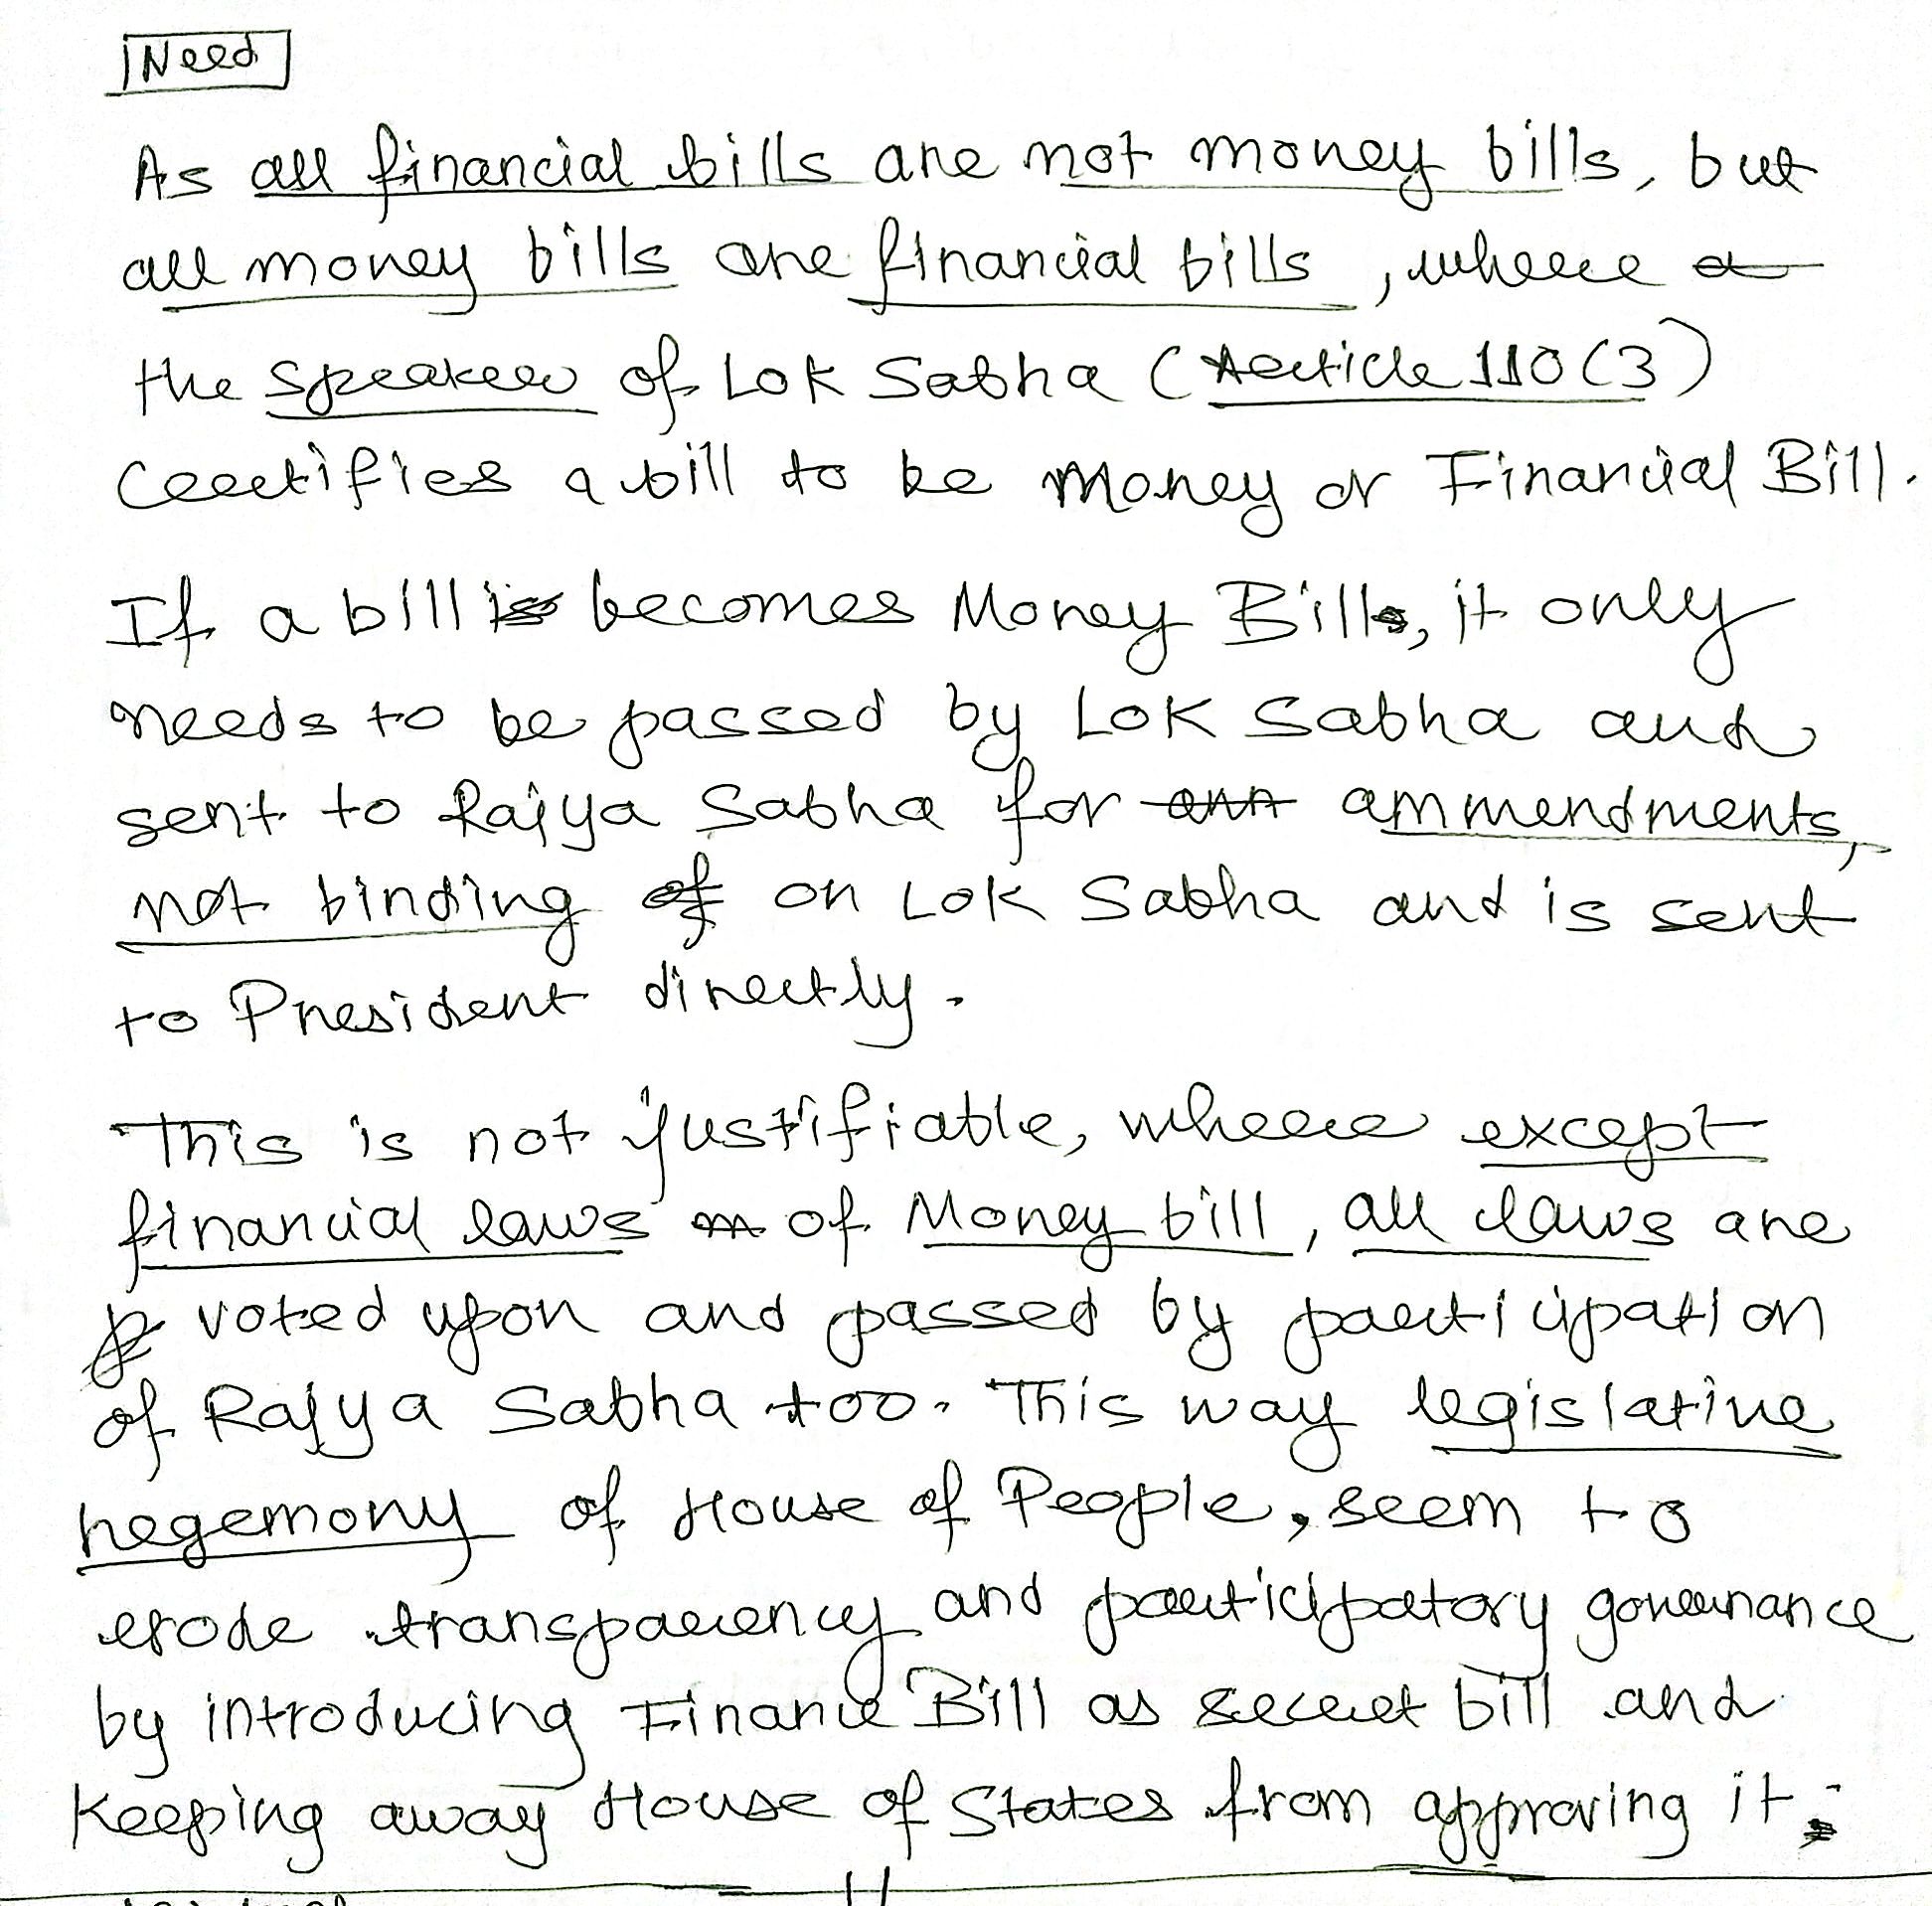 Need
As all financial bills are not money bills, but
all money bills are financial bills, where
the speaker of Lok Sabha (Article 110(3)
Certifies a bill to be Money or Financial Bill.
If a bill becomes Money Bill, it only
needs to be passed by Lok Sabha and
sent to Rajya Sabha for ammendments,
not binding on Lok Sabha and is sent
to President directly.
This is not justifiable, where except
financial laws of Money bill, all laws are
voted upon and passed by participation
of Rajya Sabha too. This way legislative
hegemony of House of People, seem to
erode transparency and participatory governance
by introducing Finance Bill as secret bill and
Keeping away House of States from approving it.